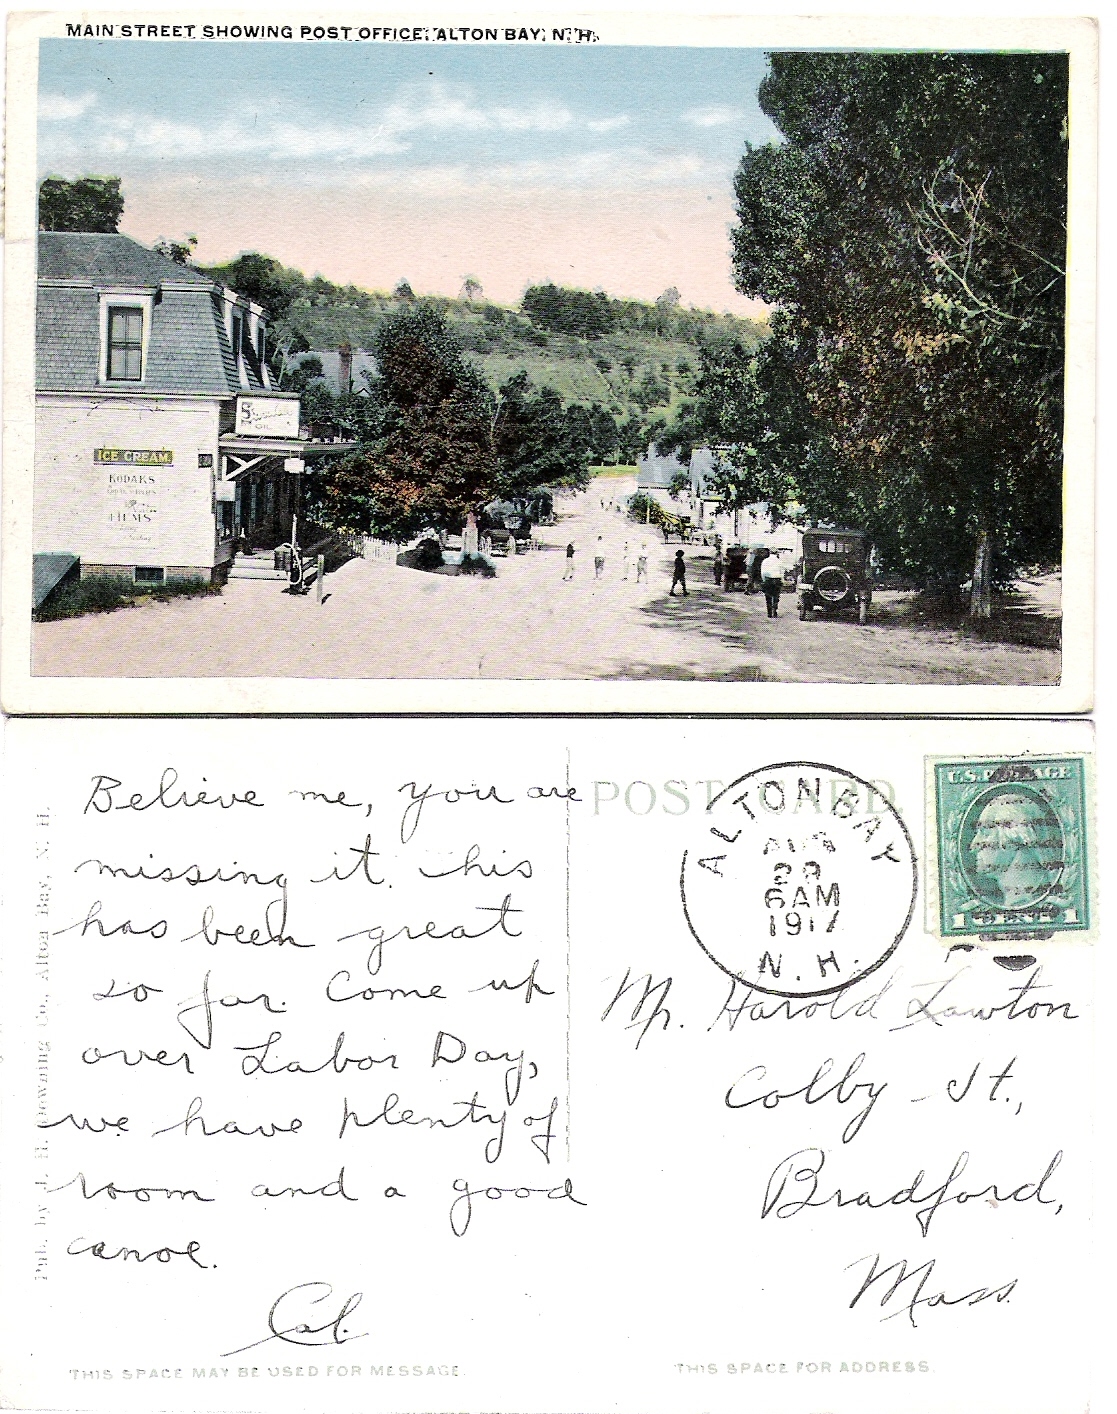 MAIN STREET SHOWING POST OFFICE, ALTON BAY, N. H.
OIL
ICE CREAM
KODAKS
FILMS
POST CARD
U.S. POSTAGE
1 CENT 1
ALTON BAY
AUG
29
6 AM
1917
N. H.
Believe me, you are
missing it. This
has been great
so far. Come up
over Labor Day,
we have plenty of
room and a good
canoe.
Cal.
Mr. Harold Lawton
Colby St.,
Bradford,
Mass.
Pub. by J. H. Downing Co., Alton Bay, N. H.
THIS SPACE MAY BE USED FOR MESSAGE.
THIS SPACE FOR ADDRESS.